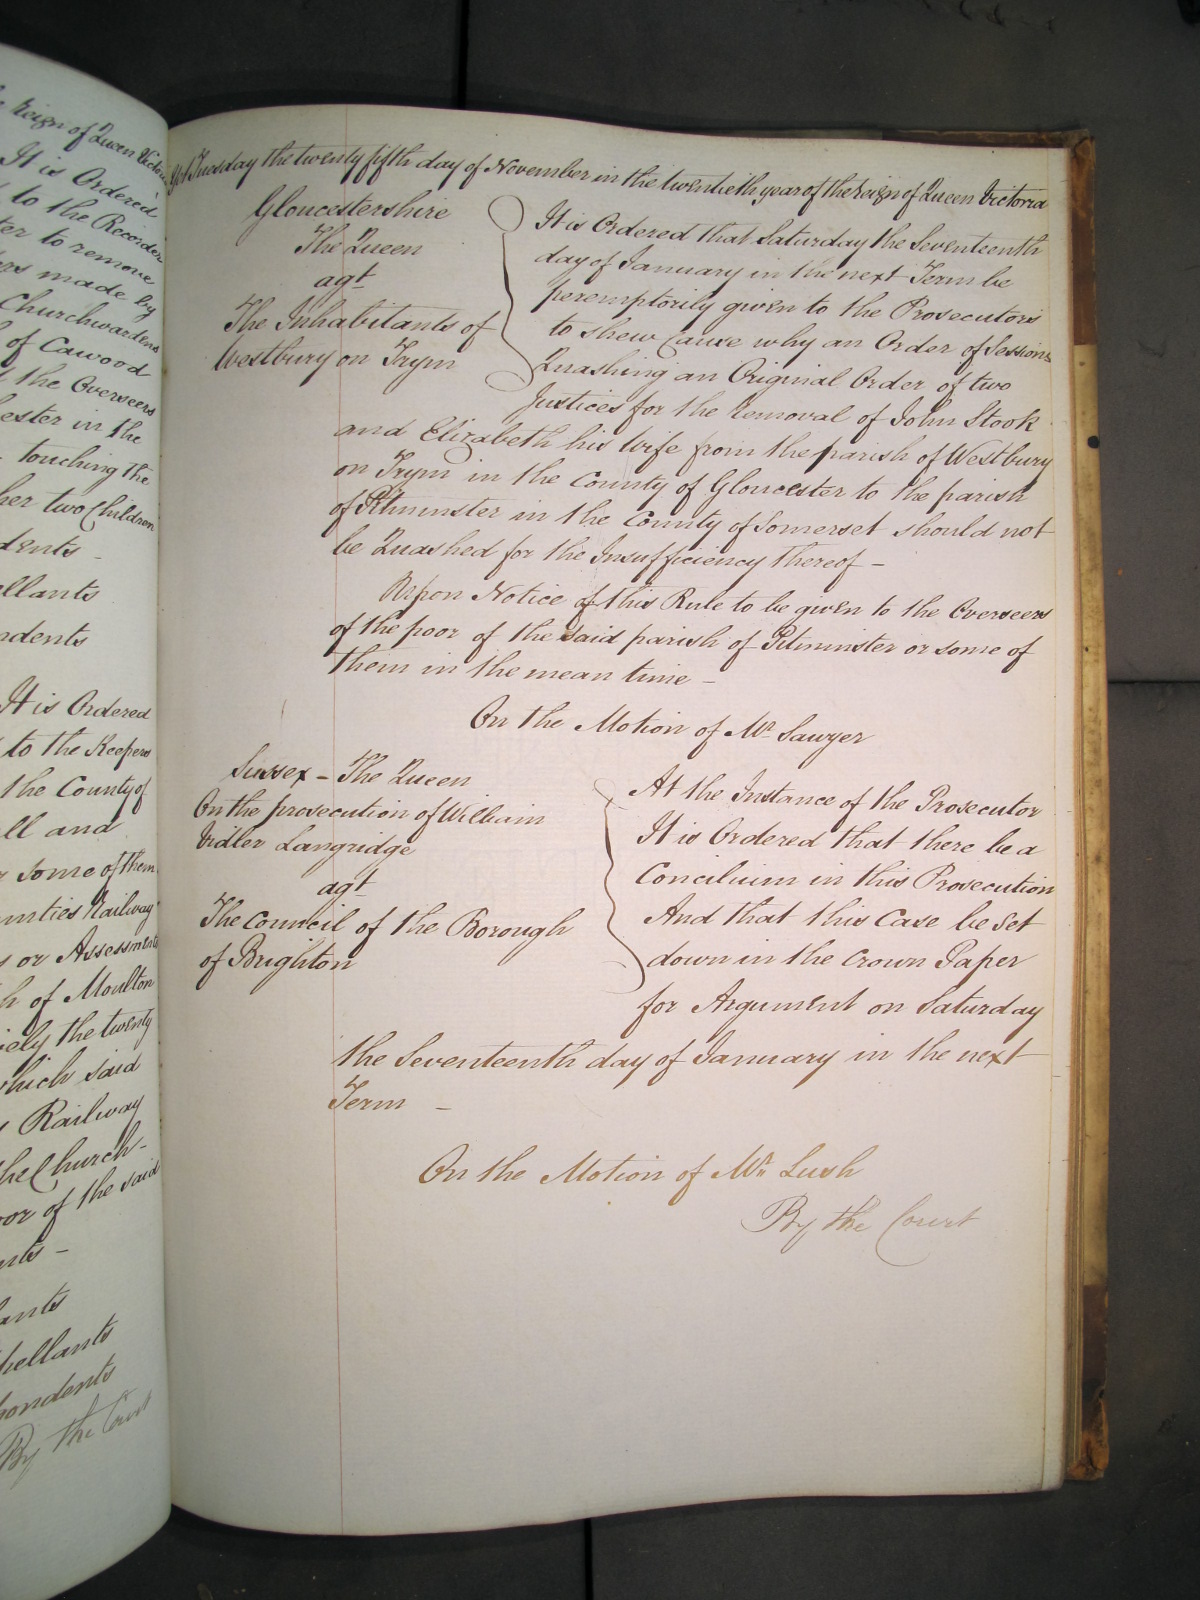 e Reign of Queen Victoria
It is Ordered
to the Recorder
ter to remove
ers made by
Churchwardens
of Cawood
the Overseers
ester in the
touching the
her two Children
dents -
ellants
ndents
It is Ordered
to the Keepers
the County of
ll and
r some of them
unties Railway
s or Assessments
h of Moulton
iely the twenty
which said
y Railway
the Church-
oor of the said
ents -
lants
pellants
pondents
By the Court
Yet Tuesday the twenty fifth day of November in the twentieth year of the reign of Queen Victoria
Gloucestershire
The Queen
agt
The Inhabitants of
Westbury on Trym
It is Ordered that Saturday the Seventeenth
day of January in the next Term be
peremptorily given to the Prosecutors
to shew Cause why an Order of Sessions
Quashing an Original Order of two
Justices for the Removal of John Stook
and Elizabeth his Wife from the parish of Westbury
on Trym in the County of Gloucester to the parish
of Pitminster in the County of Somerset should not
be Quashed for the Insufficiency thereof -
Upon Notice of this Rule to be given to the Overseers
of the poor of the said parish of Pitminster or some of
them in the mean time -
On the Motion of Mr. Sawyer
Sussex - The Queen
On the prosecution of William
Vidler Langridge
agt
The Council of the Borough
of Brighton
At the Instance of the Prosecutor
It is Ordered that there be a
Concilium in this Prosecution
And that this Case be Set
down in the Crown Paper
for Argument on Saturday
the Seventeenth day of January in the next
Term -
On the Motion of Mr. Lush
By the Court